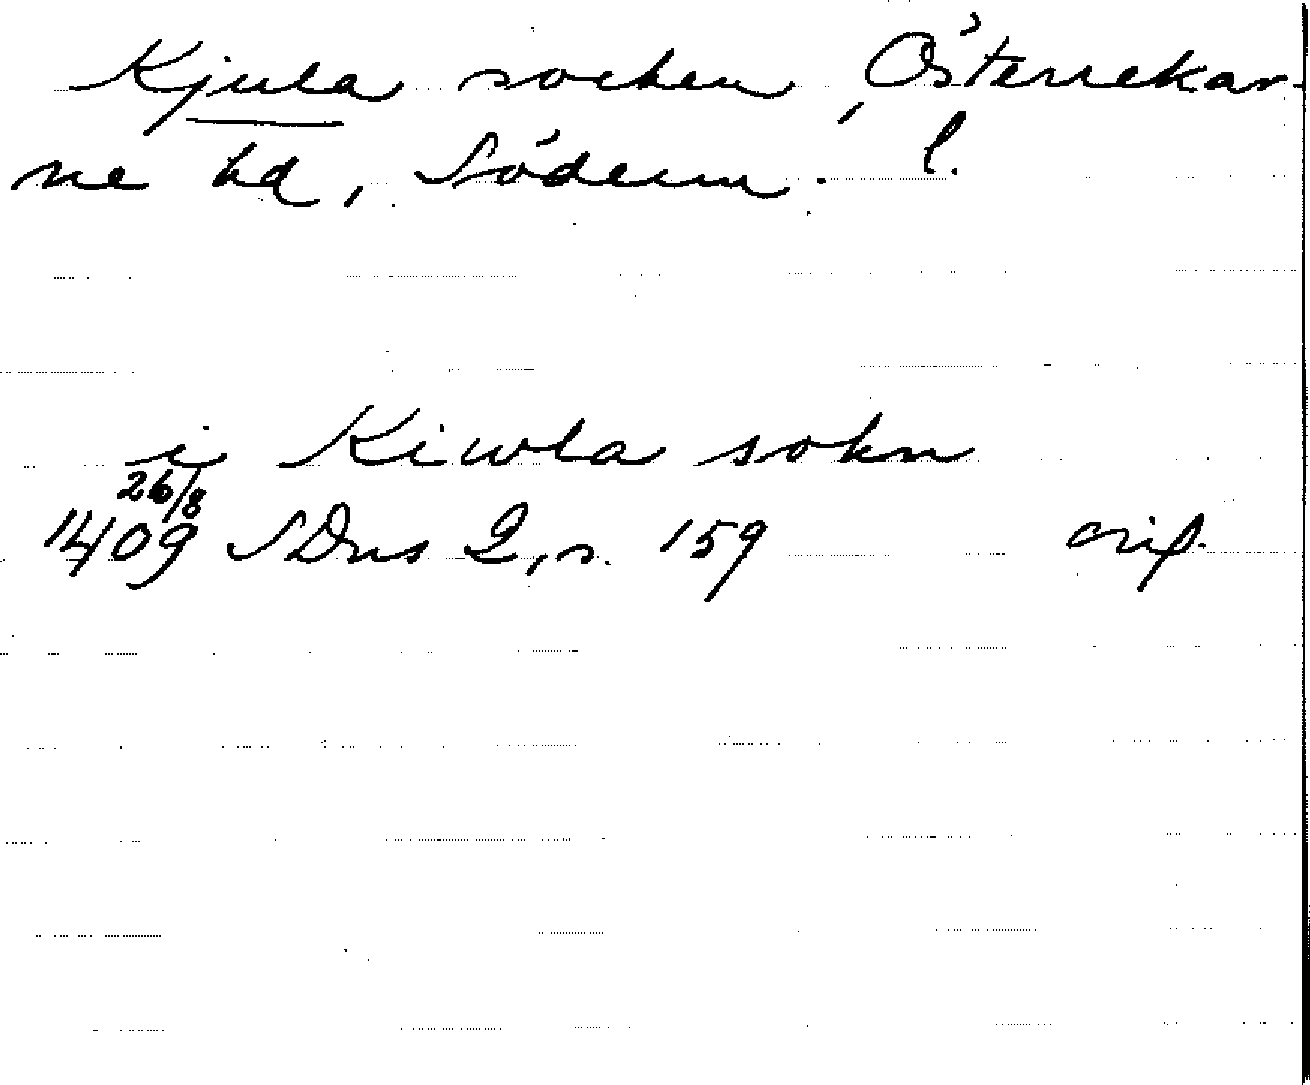 Kjula socken, Österrekar-
ne hd, Söderm. l.
i Kiwla sokn
26/8
1409 SDns 2, s. 159 orig.